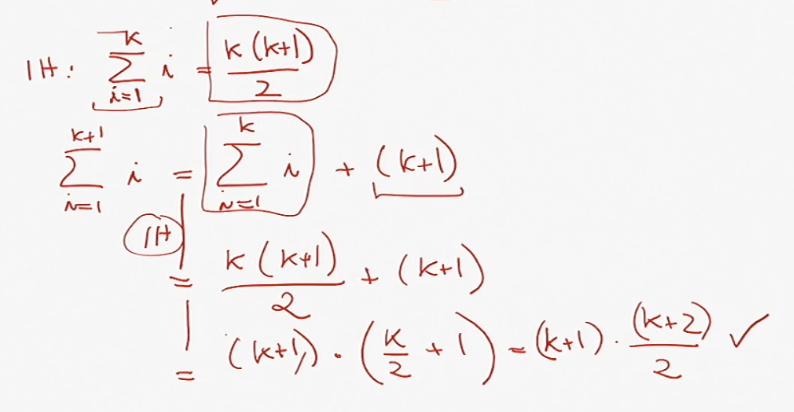 IH: ∑_{i=1}^{k} i = k(k+1)/2
∑_{i=1}^{k+1} i = ∑_{i=1}^{k} i + (k+1)
IH
= k(k+1)/2 + (k+1)
= (k+1) · (k/2 + 1) = (k+1) · (k+2)/2 ✓